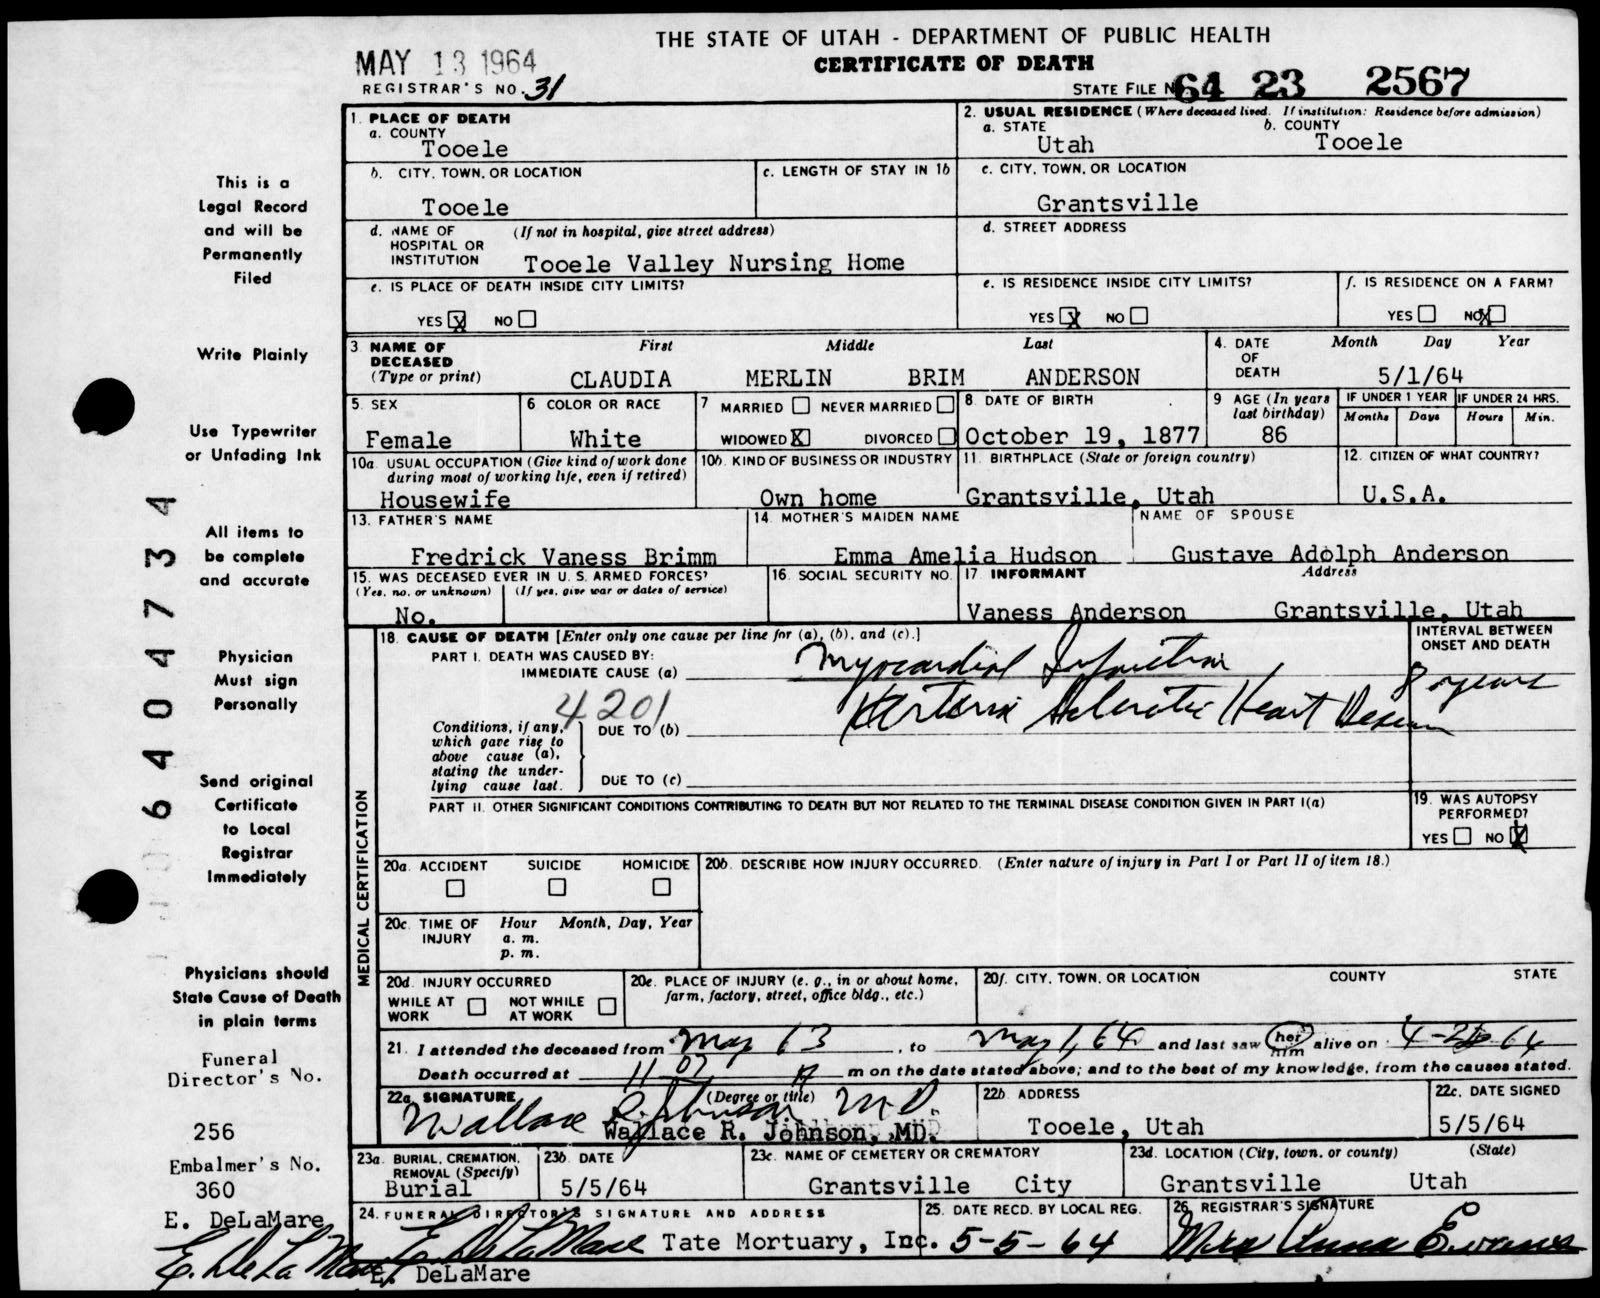 THE STATE OF UTAH - DEPARTMENT OF PUBLIC HEALTH
MAY 13 1964
CERTIFICATE OF DEATH
REGISTRAR'S NO. 31
STATE FILE NO. 64 23 2567
1. PLACE OF DEATH
a. COUNTY
Tooele
2. USUAL RESIDENCE (Where deceased lived. If institution: Residence before admission)
a. STATE b. COUNTY
Utah Tooele
b. CITY, TOWN, OR LOCATION
Tooele
c. LENGTH OF STAY IN 1b
c. CITY, TOWN, OR LOCATION
Grantsville
d. NAME OF (If not in hospital, give street address)
HOSPITAL OR
INSTITUTION Tooele Valley Nursing Home
d. STREET ADDRESS
e. IS PLACE OF DEATH INSIDE CITY LIMITS?
YES X NO
e. IS RESIDENCE INSIDE CITY LIMITS?
YES X NO
f. IS RESIDENCE ON A FARM?
YES NO X
3. NAME OF First Middle Last
DECEASED
(Type or print) CLAUDIA MERLIN BRIM ANDERSON
4. DATE Month Day Year
OF
DEATH 5/1/64
5. SEX
Female
6. COLOR OR RACE
White
7 MARRIED NEVER MARRIED
WIDOWED X DIVORCED
8. DATE OF BIRTH
October 19, 1877
9 AGE (In years
last birthday)
86
IF UNDER 1 YEAR
Months Days
IF UNDER 24 HRS.
Hours Min.
10a. USUAL OCCUPATION (Give kind of work done
during most of working life, even if retired)
Housewife
10b. KIND OF BUSINESS OR INDUSTRY
Own home
11. BIRTHPLACE (State or foreign country)
Grantsville, Utah
12. CITIZEN OF WHAT COUNTRY?
U.S.A.
13. FATHER'S NAME
Fredrick Vaness Brimm
14. MOTHER'S MAIDEN NAME
Emma Amelia Hudson
NAME OF SPOUSE
Gustave Adolph Anderson
15. WAS DECEASED EVER IN U. S. ARMED FORCES?
(Yes, no, or unknown) (If yes, give war or dates of service)
No.
16. SOCIAL SECURITY NO.
17. INFORMANT Address
Vaness Anderson Grantsville, Utah
MEDICAL CERTIFICATION
18. CAUSE OF DEATH [Enter only one cause per line for (a), (b), and (c).]
INTERVAL BETWEEN
ONSET AND DEATH
PART I. DEATH WAS CAUSED BY:
IMMEDIATE CAUSE (a) Myocardial Infarction
8 years
4201
Conditions, if any,
which gave rise to
above cause (a),
stating the under-
lying cause last.
DUE TO (b) Arterio Sclerotic Heart Disease
DUE TO (c)
PART II. OTHER SIGNIFICANT CONDITIONS CONTRIBUTING TO DEATH BUT NOT RELATED TO THE TERMINAL DISEASE CONDITION GIVEN IN PART I(a)
19. WAS AUTOPSY
PERFORMED?
YES NO X
20a. ACCIDENT SUICIDE HOMICIDE
20b. DESCRIBE HOW INJURY OCCURRED. (Enter nature of injury in Part I or Part II of item 18.)
20c. TIME OF Hour Month, Day, Year
INJURY a. m.
p. m.
20d. INJURY OCCURRED
WHILE AT NOT WHILE
WORK AT WORK
20e. PLACE OF INJURY (e. g., in or about home,
farm, factory, street, office bldg., etc.)
20f. CITY, TOWN, OR LOCATION COUNTY STATE
21. I attended the deceased from May 63, to May 1, 64 and last saw her him alive on 64
Death occurred at 11 07 A m on the date stated above; and to the best of my knowledge, from the causes stated.
22a. SIGNATURE (Degree or title)
Wallace R. Johnson M.D.
Wallace R. Johnson, MD.
22b. ADDRESS
Tooele, Utah
22c. DATE SIGNED
5/5/64
23a. BURIAL, CREMATION,
REMOVAL (Specify)
Burial
23b. DATE
5/5/64
23c. NAME OF CEMETERY OR CREMATORY
Grantsville City
23d. LOCATION (City, town, or county) (State)
Grantsville Utah
24. FUNERAL DIRECTOR'S SIGNATURE AND ADDRESS
E. DeLaMare Tate Mortuary, Inc.
E. DeLaMare
25. DATE RECD. BY LOCAL REG.
5-5-64
26. REGISTRAR'S SIGNATURE
Mrs Anna Evans
This is a
Legal Record
and will be
Permanently
Filed
Write Plainly
Use Typewriter
or Unfading Ink
All items to
be complete
and accurate
Physician
Must sign
Personally
Send original
Certificate
to Local
Registrar
Immediately
Physicians should
State Cause of Death
in plain terms
Funeral
Director's No.
256
Embalmer's No.
360
E. DeLaMare
E. DeLaMare
6404734